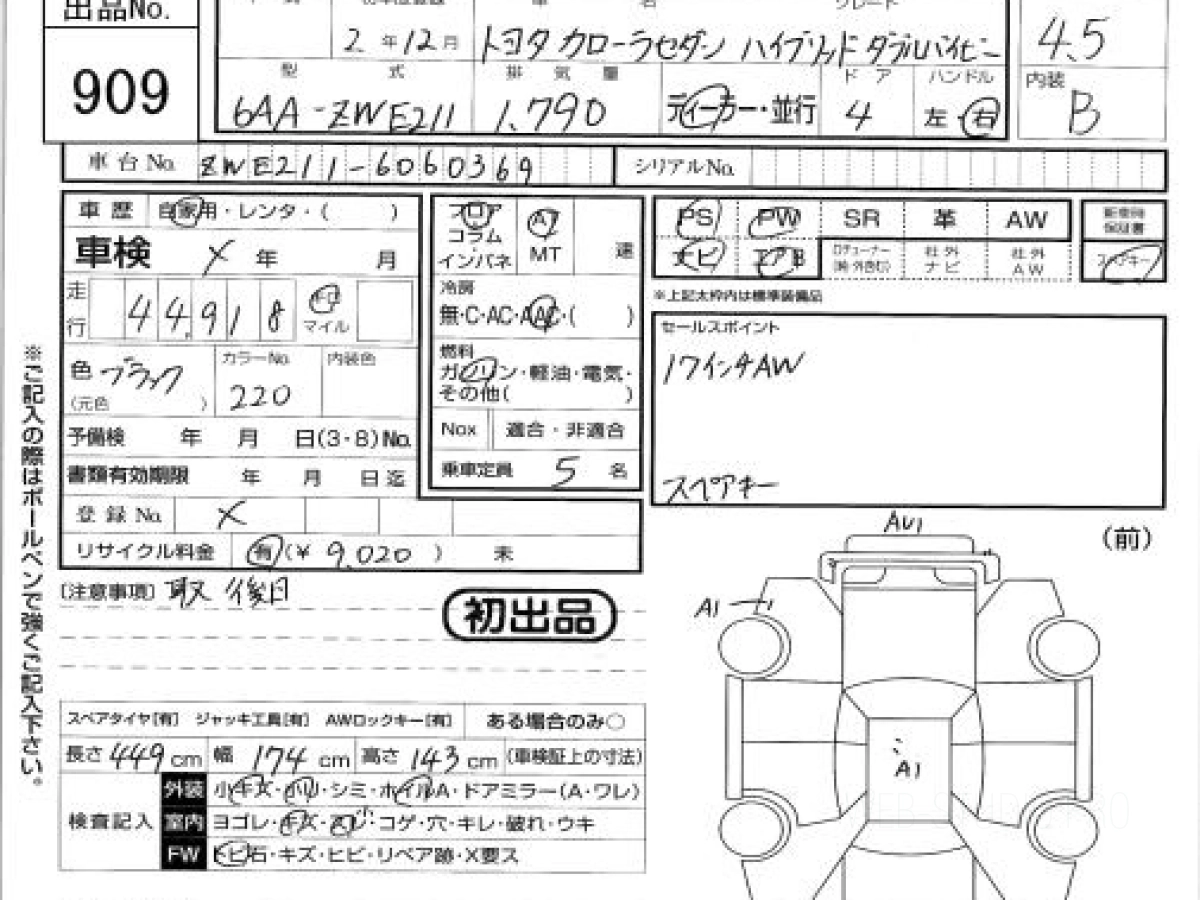 出品No.
909
2 年 12 月
トヨタ カローラセダン ハイブリッド ダブルバイビー
4.5
型 式
排 気 量
ドア
ハンドル
内装
6AA-ZWE211
1.790
ディーラー・並行
4
左 右
B
車台No. ZWE211-6060369
シリアルNo.
車歴 自家用・レンタ・( )
車検 X 年 月
走行 44,918 キロ マイル
色 ブラック
(元色 )
カラーNo. 220
内装色
予備検 年 月 日(3・8)No.
書類有効期限 年 月 日迄
登録No. X
リサイクル料金 有(¥ 9,020 ) 未
フロア
コラム
インパネ
AT
MT
速
冷房
無・C・AC・AAC・( )
燃料
ガソリン・軽油・電気・
その他( )
Nox 適合・非適合
乗車定員 5 名
PS PW SR 革 AW
新車時保証書
ナビ エアB
ロチューナー
(純・外含む)
社外ナビ
社外AW
スペアキー
※上記太枠内は標準装備品
セールスポイント
17インチAW
スペアキー
※ご記入の際はボールペンで強くご記入下さい。
[注意事項] 取 後日
初出品
AU1
(前)
A1
A1
スペアタイヤ[有] ジャッキ工具[有] AWロックキー[有] ある場合のみ○
長さ 449 cm 幅 174 cm 高さ 143 cm (車検証上の寸法)
検査記入
外装 小キズ・小凹・シミ・ホイルA・ドアミラー(A・ワレ)
室内 ヨゴレ・キズ・スレ・コゲ・穴・キレ・破れ・ウキ
FW トビ石・キズ・ヒビ・リペア跡・X要ス